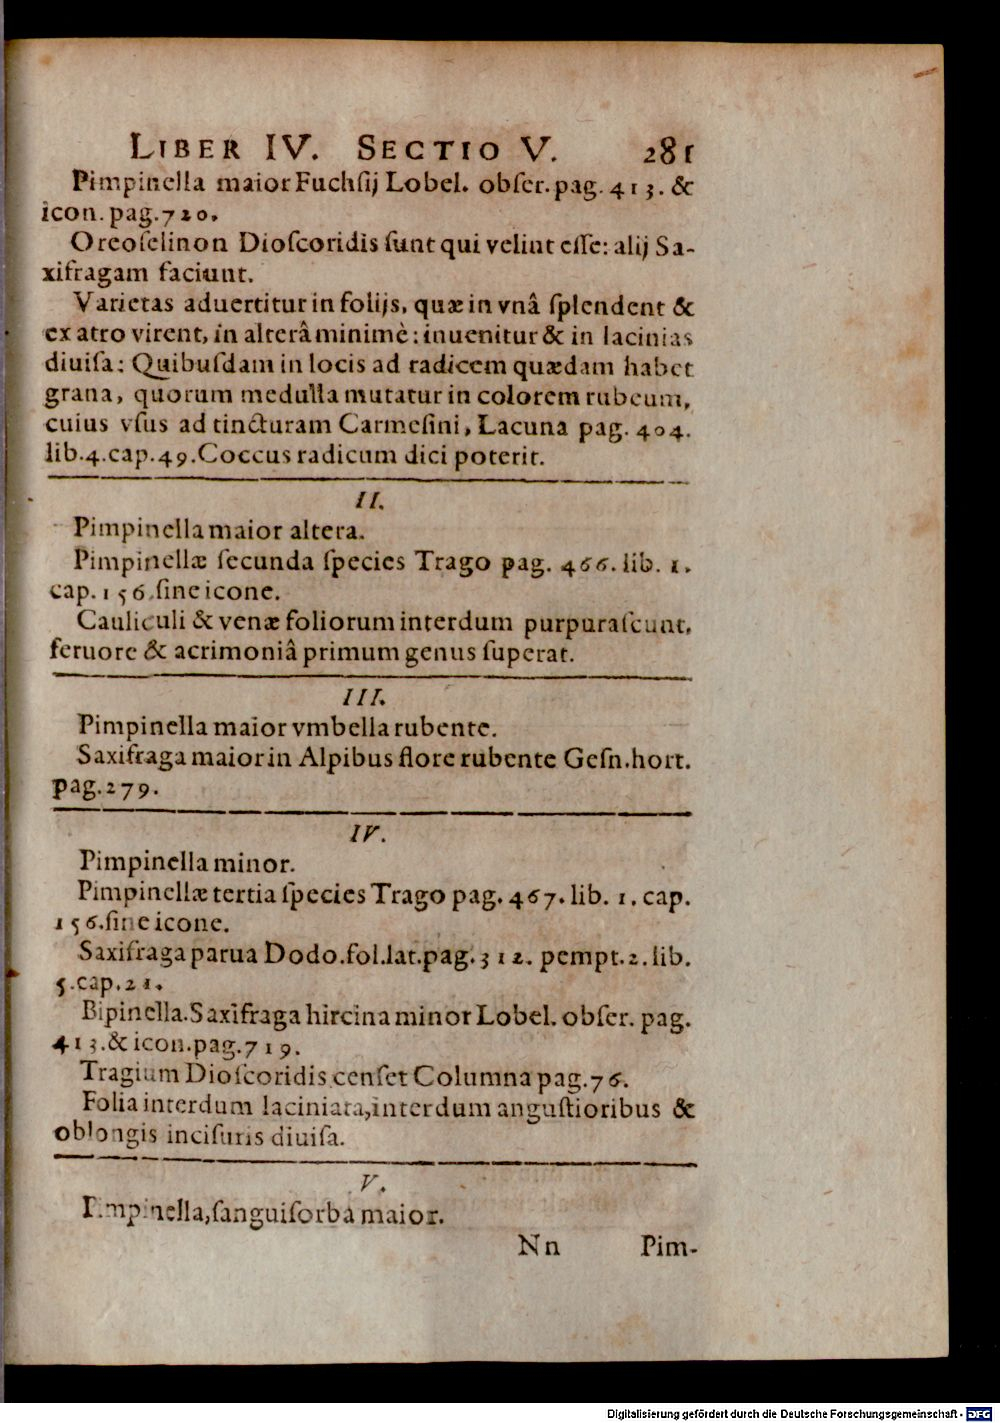 LIBER IV. SECTIO V. 281
Pimpinella maior Fuchſij Lobel. obſer. pag. 413. &
icon. pag. 720.
Oreoſelinon Dioſcoridis ſunt qui velint eſſe: alij Sa-
xifragam faciunt.
Varietas aduertitur in folijs, quæ in vnâ ſplendent &
ex atro virent, in alterâ minimè: inuenitur & in lacinias
diuiſa: Quibuſdam in locis ad radicem quædam habet
grana, quorum medulla mutatur in colorem rubeum,
cuius vſus ad tincturam Carmeſini, Lacuna pag. 404.
lib. 4. cap. 49. Coccus radicum dici poterit.
II.
Pimpinella maior altera.
Pimpinellæ ſecunda ſpecies Trago pag. 466. lib. 1.
cap. 156. ſine icone.
Cauliculi & venæ foliorum interdum purpuraſcunt,
feruore & acrimoniâ primum genus ſuperat.
III.
Pimpinella maior vmbella rubente.
Saxifraga maior in Alpibus flore rubente Geſn. hort.
pag. 279.
IV.
Pimpinella minor.
Pimpinellæ tertia ſpecies Trago pag. 467. lib. 1. cap.
156. ſine icone.
Saxifraga parua Dodo. fol. lat. pag. 312. pempt. 2. lib.
5. cap. 21.
Bipinella. Saxifraga hircina minor Lobel. obſer. pag.
413. & icon. pag. 719.
Tragium Dioſcoridis cenſet Columna pag. 76.
Folia interdum laciniata, interdum anguſtioribus &
oblongis inciſuris diuiſa.
V.
Pimpinella, ſanguiſorba maior.
Nn Pim-
Digitalisierung gefördert durch die Deutsche Forschungsgemeinschaft - DFG